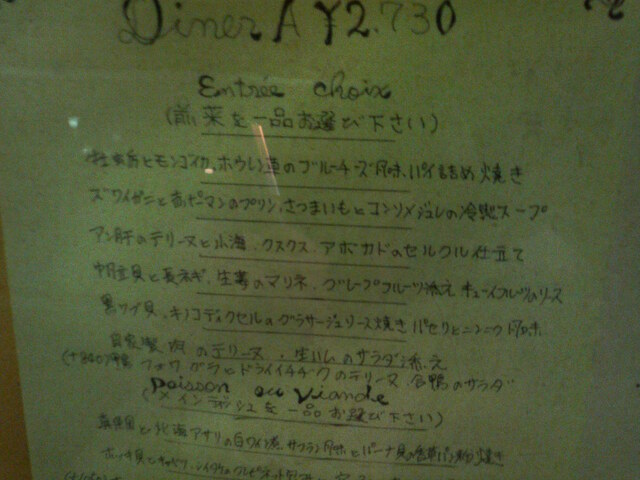 Diner A ¥2.730
Entrée choix
(前菜を一品お選び下さい)
牡蛎とモンゴイカ、ホウレン草のブルーチーズ風味、パイ詰め焼き
ズワイガニと赤ピーマンのプリン、さつまいもとコンソメジュレの冷製スープ
アン肝のテリーヌと小海、クスクス、アボカドのセルクル仕立て
帆立貝と長ネギ、生雲のマリネ、グレープフルーツ添え キューイフルーツのソース
黒ツブ貝、キノコデュクセルのグラサージュソース焼き パセリとニンニク風味
自家製 肉のテリーヌ、生ハムのサラダ添え
フォワグラとドライイチヂクのテリーヌ 合鴨のサラダ
Poisson ou Viande
(メインディシュを一品お選び下さい)
と北海アサリの白ワイン蒸、サフラン風味とパーナ貝の香草パン粉焼き
ホッキ貝とキャベツ、シイタケの